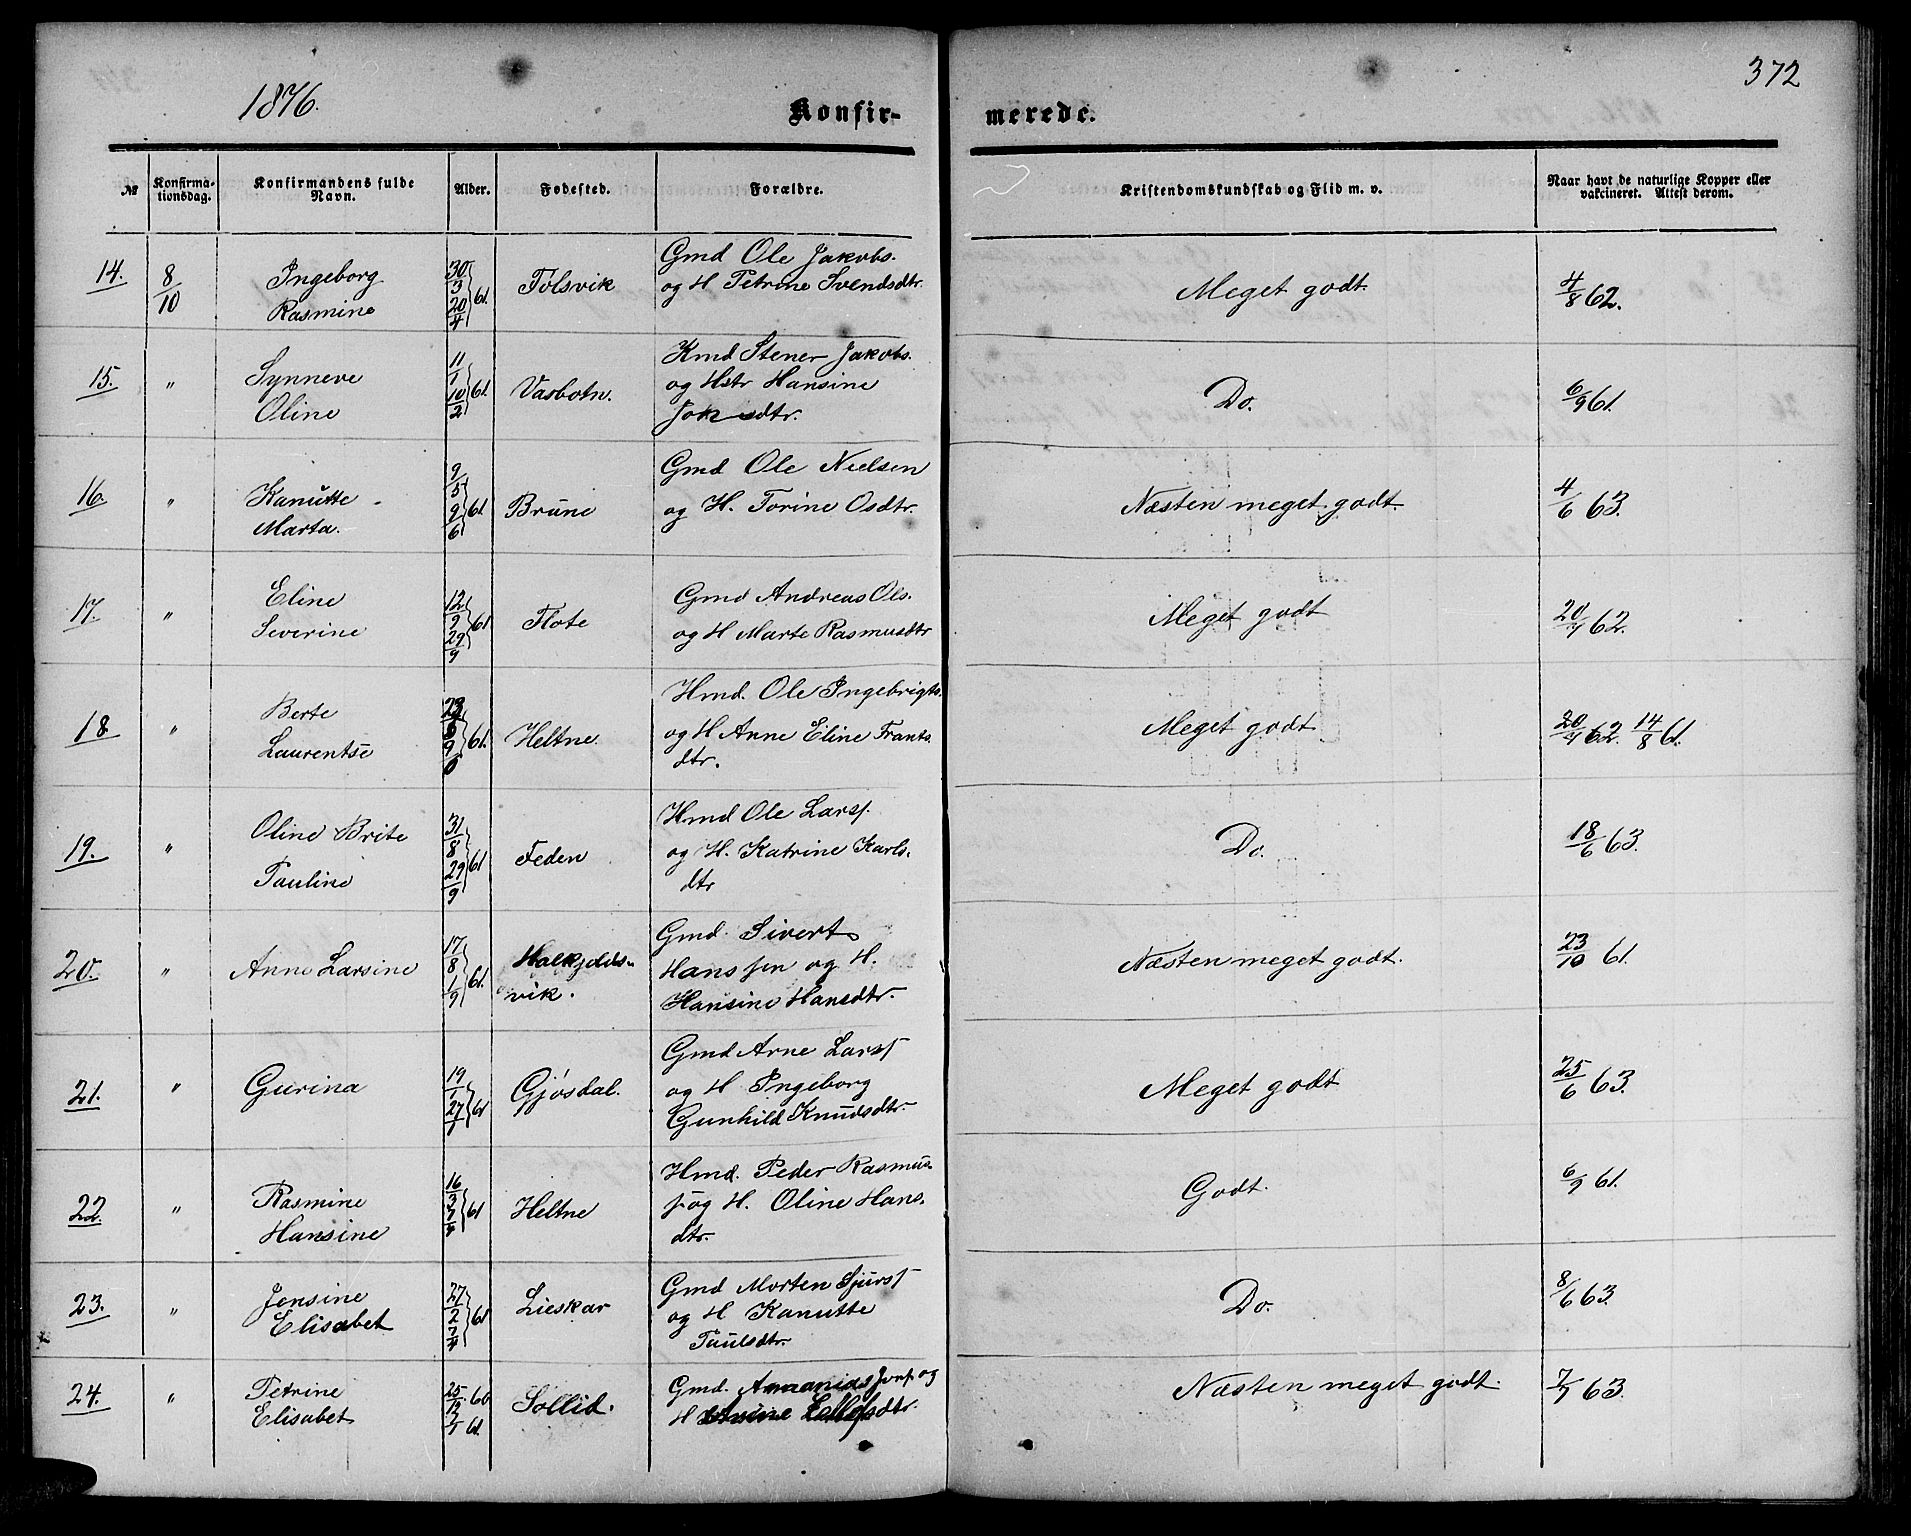 1876.
Konfir-
merede.
372
№
Konfirma-
tionsdag.
Konfirmandens fulde
Navn.
Alder.
Fødested.
Forældre.
Kristendomskundskab og Flid m. v.
Naar havt de naturlige Kopper eller
vakcineret. Attest derom.
14. 8/10 Ingeborg Rasmine 30/3 20/4 61 Folsvik Gmd Ole Jakobs.
og H Petrine Svendsdtr. Meget godt. 4/8 62.
15. " Synneve Oline 11/1 10/2 61 Vasbotn. Kmd Stener Jakobs.
og Hstr Hansine
Jok sdtr. Do. 6/9 61.
16. " Kanutte Marta. 9/5 9/6 61 Brune Gmd Ole Nielsen
og H. Torine Osdtr. Næsten meget godt. 4/6 63.
17. " Eline Severine 12/9 29/9 61 Flote Gmd Andreas Ols.
og H Marte Rasmusdtr Meget godt 20/7 62.
18. " Berte Laurentse 61. Heltne. Hmd. Ole Ingebrigts.
og H Anne Eline Frants.
dtr. Meget godt 20/7 62. 14/8 61.
19. " Oline Brite Pauline 31/8 29/9 61 Feden Hmd Ole Larsf.
og H. Katrine Karls.
dtr Do. 18/6 63.
20. " Anne Larsine 17/8 1/9 61. Halkjelds-
vik. Gmd. Sivert
Hansfen og H.
Hansine Hansdtr. Næsten meget godt. 23/10 61.
21. " Gurina 19/1 27/1 61 Gjøsdal. Gmd Arne Larsf
og H Ingeborg
Gunhild Knudsdtr. Meget godt 25/6 63.
22 " Rasmine Hansine 16/3 7/4 61 Heltne Hmd. Peder Rasmus-
f. og H. Oline Hans.
dtr. Godt. 6/9 61.
23. " Jensine Elisabet 27/2 7/4 61 Lieskar Gmd Morten Sjursf
og H Kanutte
Paulsdtr. Do. 8/6 63.
24. " Petrine Elisabet 25/12 60 61. Sollid. Gmd. Ananias Jonf. og
H Næsten meget godt. 7/7 63.